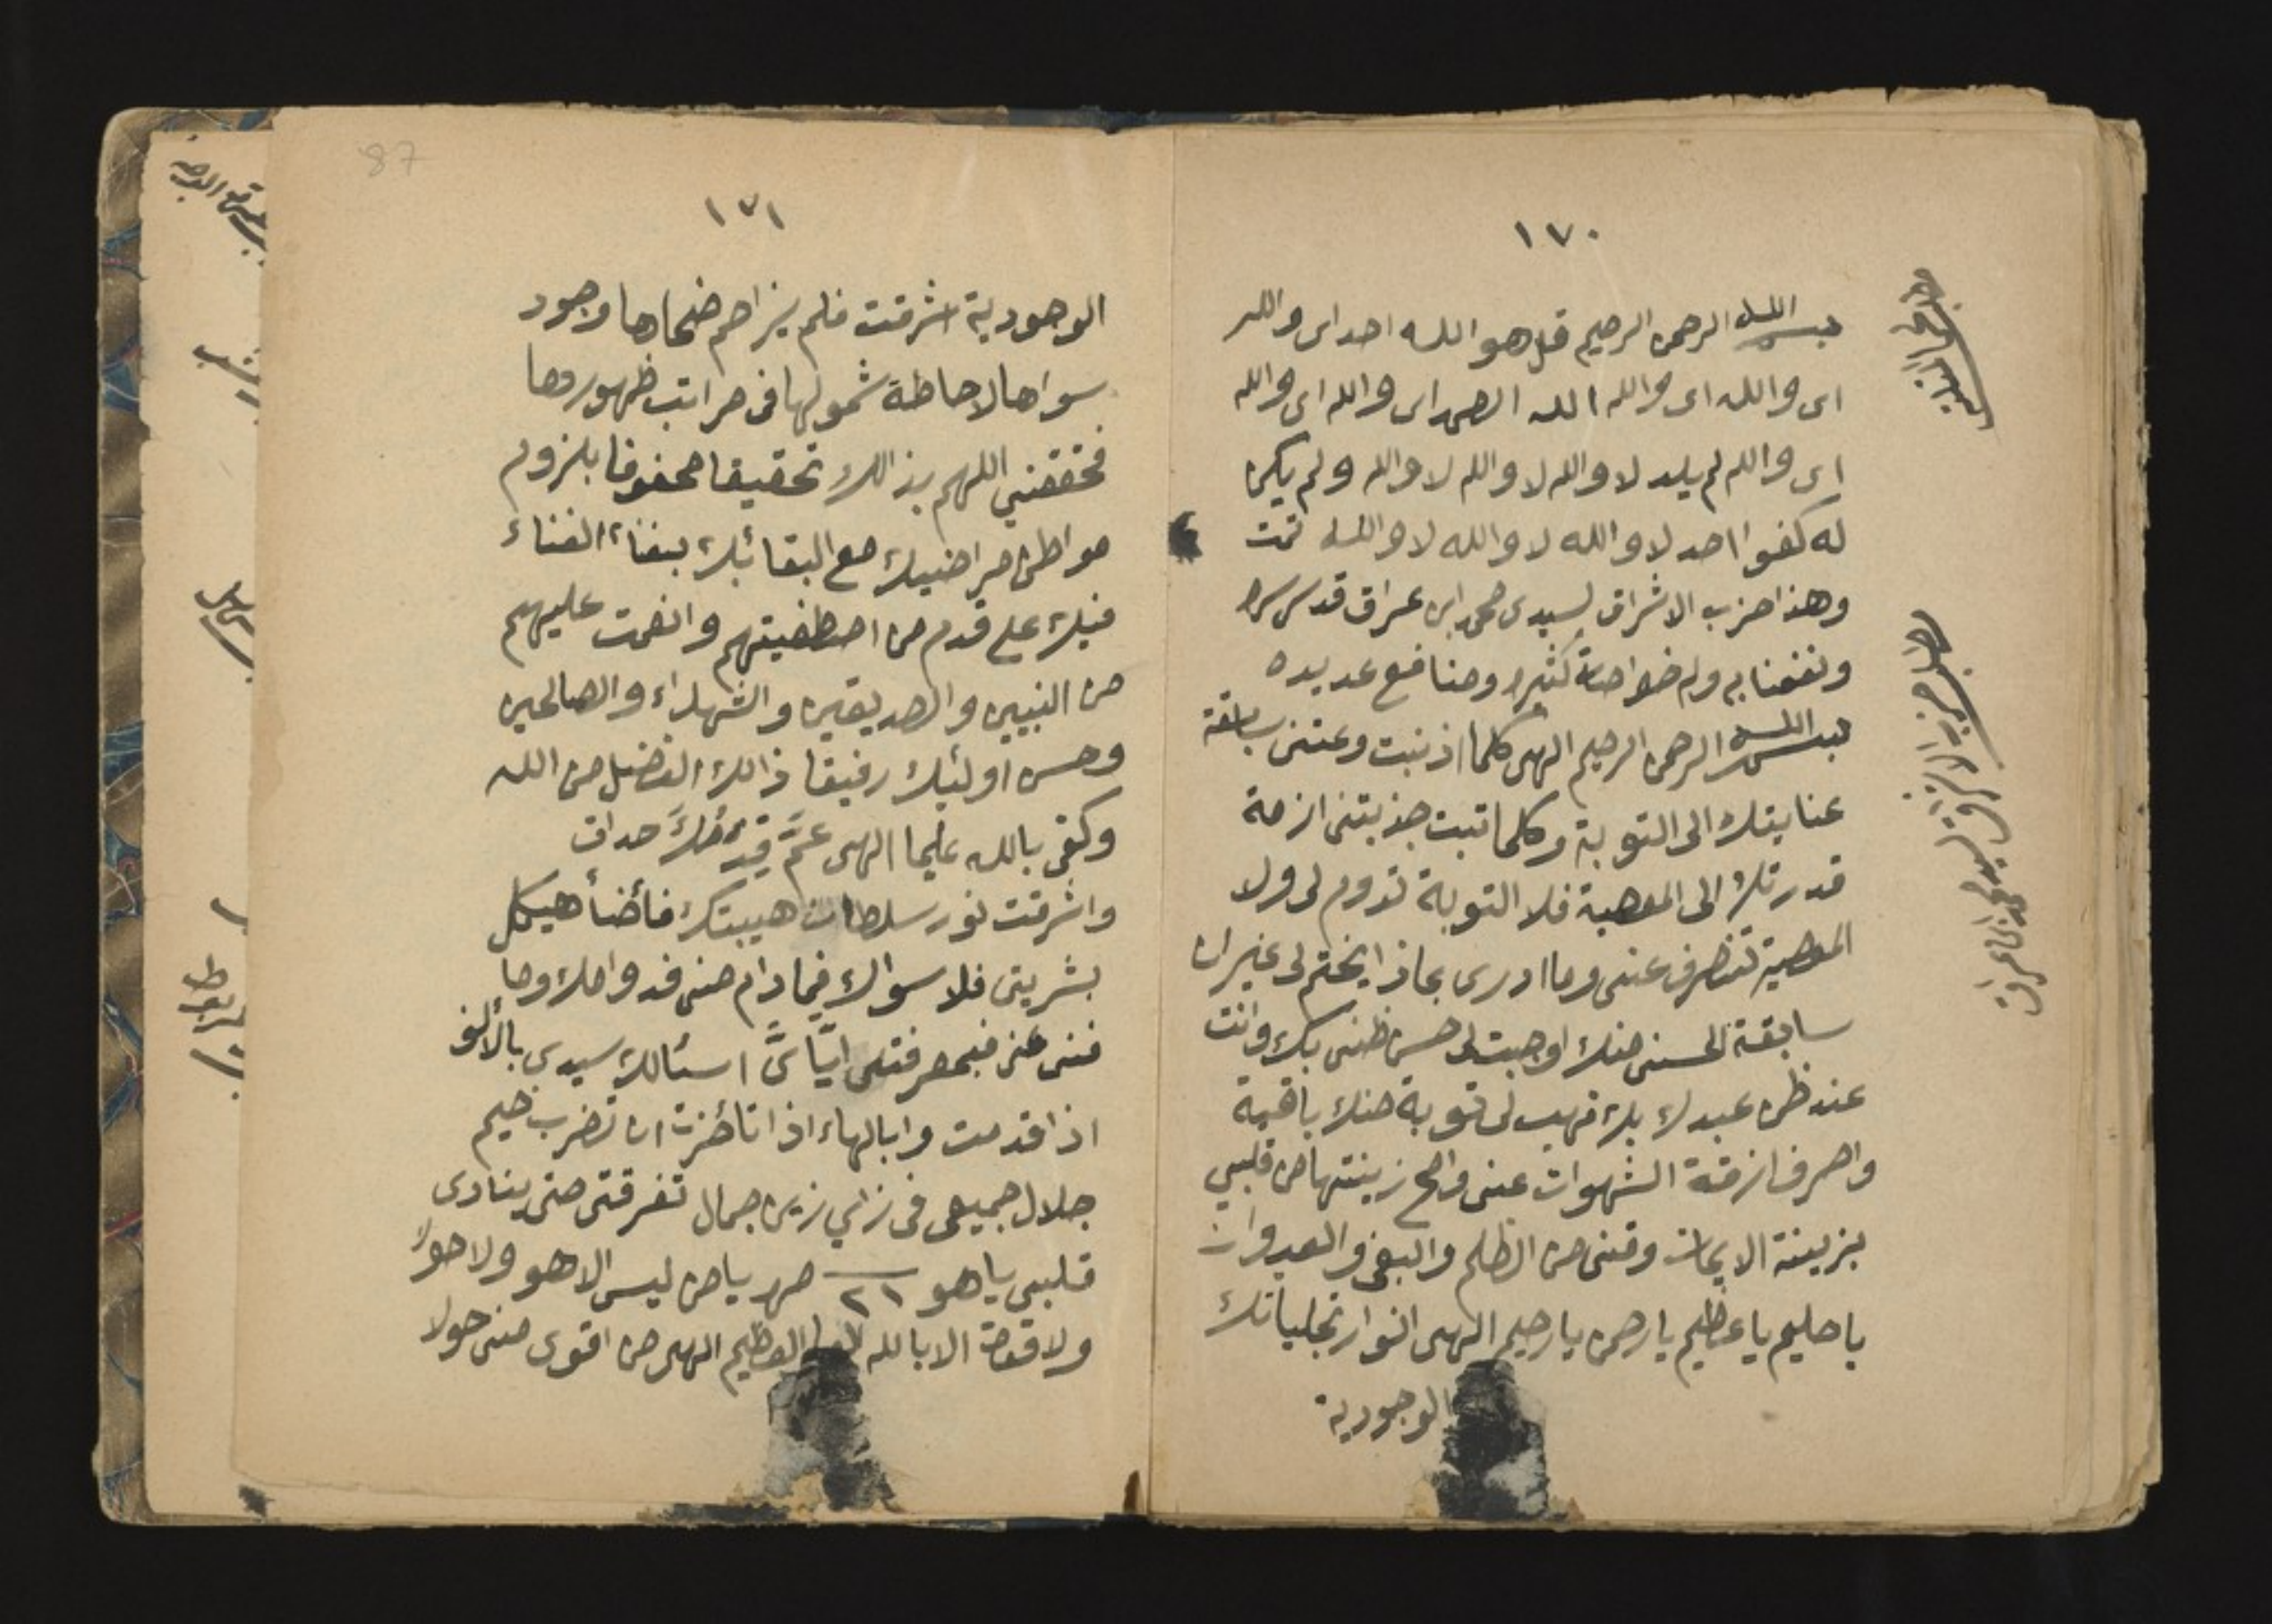 ١٧٠
بسم الله الرحمن الرحيم قل هو الله احد اى والله
اى والله اى والله الله الصمد اى والله اى والله
اى والله لم يلد لا والله لا والله لا والله ولم يكن
له كفوا احد لا والله لا والله لا والله تمت
وهذا حزب الاشراق لسيدى محمد ابن عراق قدس سره
ونفعنا به وله خواصاة كثيره ومنافع عديده
بسم الله الرحمن الرحيم الهى كلما اذنبت دعتنى سابقة
عنايتك الى التوبة وكلما تبت جذبتنى ازمة
قدرتك الى المعصية فلا التوبة تدوم لى ولا
المعصية تنصرف عنى وما ادرى بماذا يختم لى غير ان
سابقة الحسنى منك اوجبت لى حسن ظنى بك وانت
عند ظن عبدك بك فهب لى توبة منك باقية
واصرف ازمة الشهوات عنى وامح زينتها من قلبي
بزينة الايمان وقنى من الظلم والبغى والعدوان
يا حليم يا عظيم يا رحمن يا رحيم الهى انوار تجلياتك
الوجودية
مطلب حزب الاشراق لسيدى محمد ابن عراق
١٧١
87
الوجودية اشرقت فلم يزاحم ضحاها وجود
سواها لاحاطة شمولها فى مراتب ظهورها
فحققنى اللهم بذالك تحقيقا محفوفا بلزوم
مواطن مراضيك مع البقا بك بفناء الفناء
فيك على قدم من اصطفيتهم وانعمت عليهم
من النبيين والصديقين والشهداء والصالحين
وحسن اولئك رفيقا ذالك الفضل من الله
وكفى بالله عليما الهى عَمَّ قِدَمُكَ حداق
واشرقت نور سلطان هيبتك فأضأ هيكل
بشريتى فلا سواك فما دام منى فدوامك وما
فنى عنى فبمعرفتى ايَّاىَّ اسئالك سيدى بالألف
اذا قدمت وابالهاء اذا تأخرت ان تضرب خيم
جلال جميعى فى زاي زين جمال تفرقتى حتى ينادى
قلبى ياهو ٢١ مر يا من ليس الا هو ولا حول
ولا قوة الا بالله العظيم الهى من اقوى منى حولا